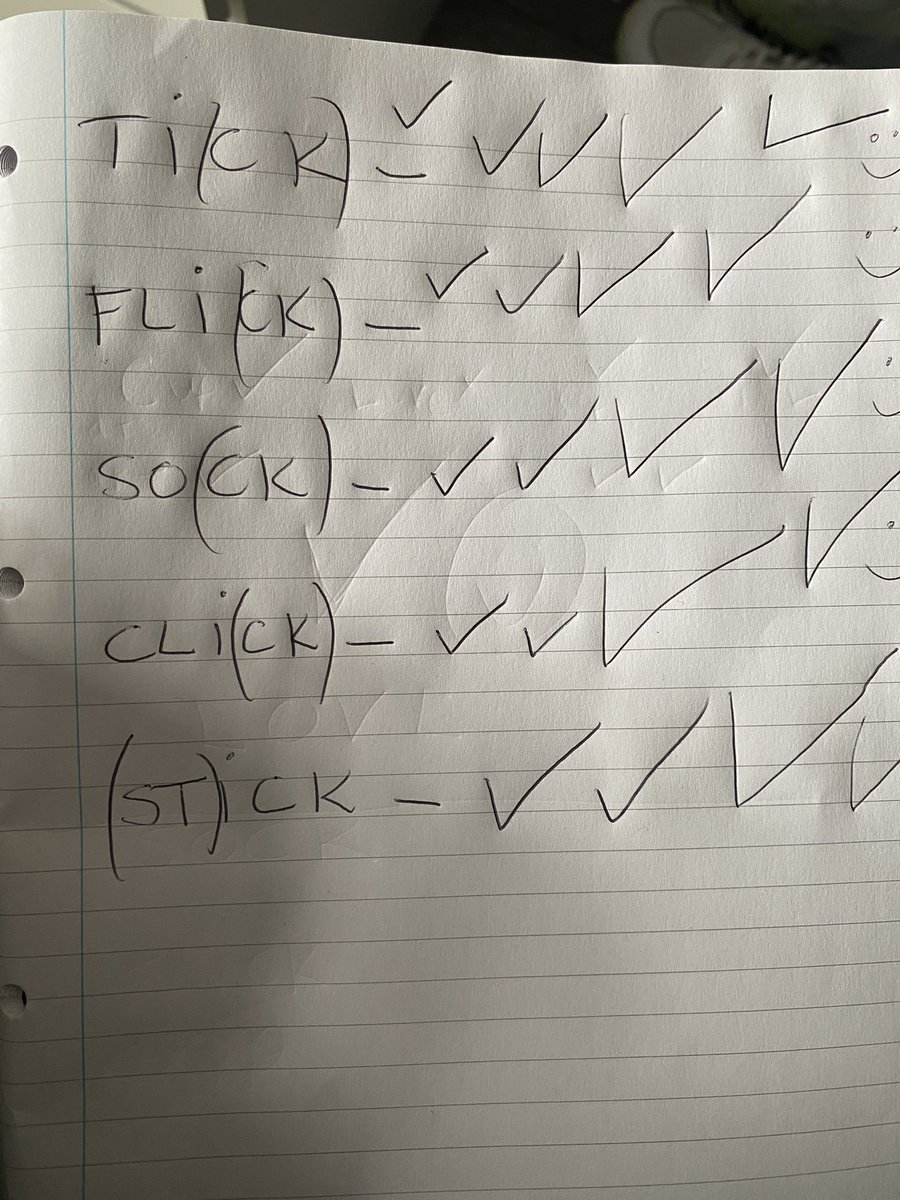 Ti(CK) - ✓ ✓ ✓ ✓ ✓
FLi(CK) - ✓ ✓ ✓ ✓
SO(CK) - ✓ ✓ ✓ ✓
CLi(CK) - ✓ ✓ ✓ ✓
(ST)iCK - ✓ ✓ ✓ ✓